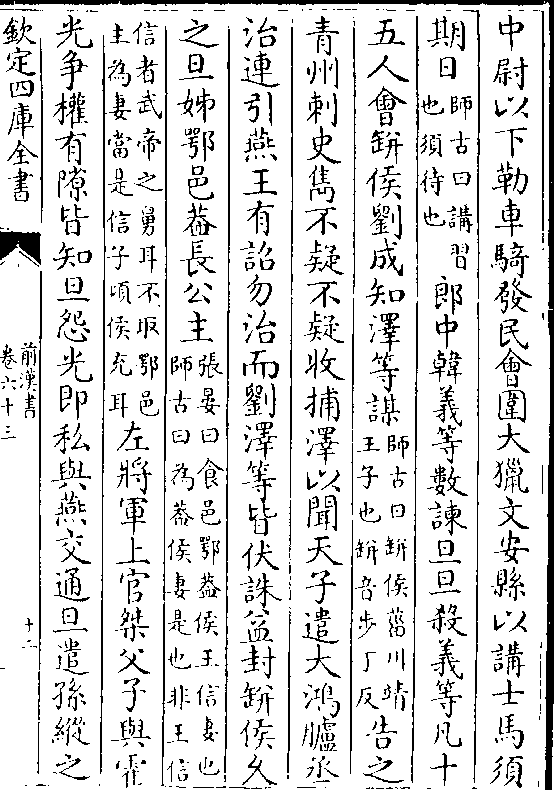 中尉以下勒車騎發民會圍大獵文安縣以講士馬須
期日師古曰講習也須待也郎中韓義等數諫旦旦殺義等凡十
五人會缾侯劉成知澤等謀師古曰缾侯菑川靖王子也缾音步丁反告之
青州刺史雋不疑不疑收捕澤以聞天子遣大鴻臚丞
治連引燕王有詔勿治而劉澤等皆伏誅益封缾侯久
之旦姊鄂邑蓋長公主張晏曰食邑鄂蓋侯王信妻也師古曰為蓋侯妻是也非王信
信者武帝之舅耳不取鄂邑主為妻當是信子頃侯充耳左將軍上官桀父子與霍
光爭權有隙皆知旦怨光即私與燕交通旦遣孫縱之
欽定四庫全書
前漢書
卷六十三
十二